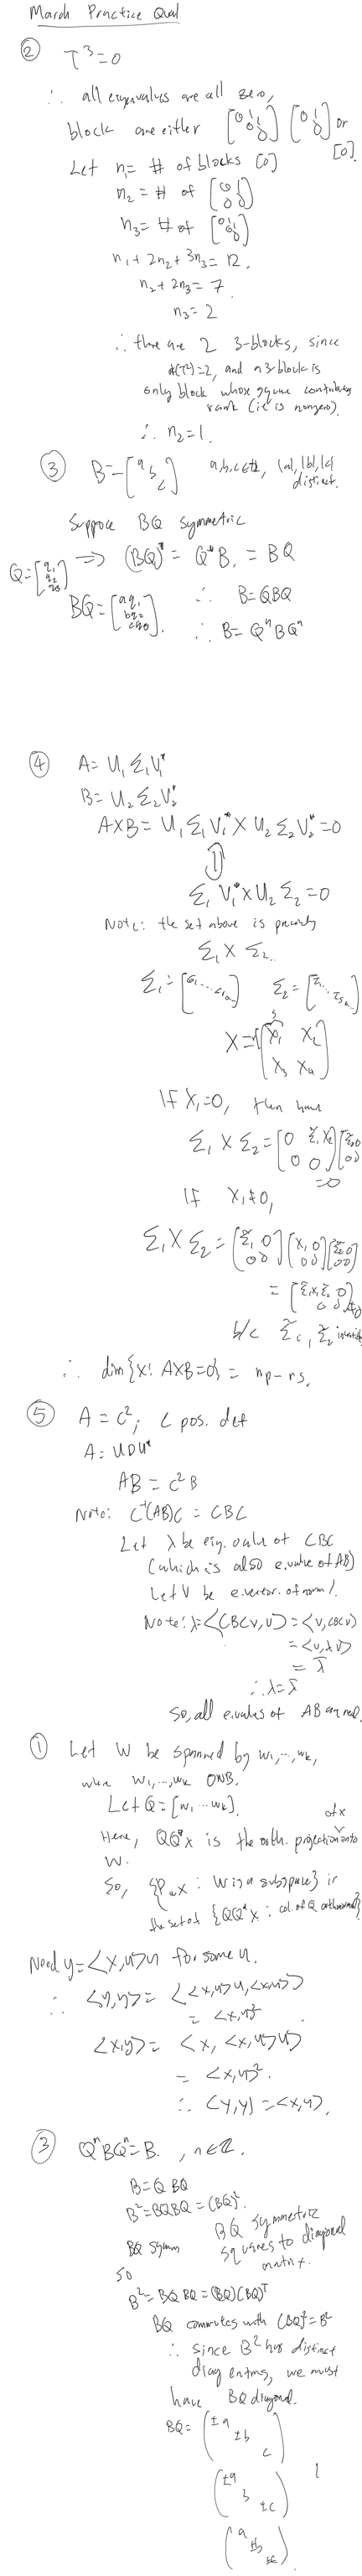 March Practice Qual
② T³=0
∴ all eigenvalues are all zero,
block are either [0 1 0; 0 0 1; 0 0 0] [0 1; 0 0] or [0].
Let n₁ = # of blocks [0]
n₂ = # of [0 1; 0 0]
n₃ = # of [0 1 0; 0 0 1; 0 0 0]
n₁ + 2n₂ + 3n₃ = 12.
n₂ + 2n₃ = 7
n₃ = 2
∴ there are 2 3-blocks, since
r(T²)=2, and a 3-block is
only block whose square contributes
rank (i.e. is nonzero).
∴ n₂=1.
③ B = [a b c] a,b,c∈ℝ, |a|,|b|,|c| distinct.
Suppose BQ symmetric
Q = [q₁ q₂ q₃] ⟹ (BQ)* = Q*B, = BQ
BQ = [aq₁ bq₂ cq₃]. ∴ B = QBQ
∴ B = QⁿBQⁿ
④ A = U₁Σ₁V₁*
B = U₂Σ₂V₂*
AXB = U₁Σ₁V₁*XU₂Σ₂V₂* = 0
⇕
Σ₁V₁*XU₂Σ₂ = 0
Note: the set above is precisely
Σ₁XΣ₂.
Σ₁ = [σ₁ ⋱ σᵣ 0] Σ₂ = [τ₁ ⋱ τₛ 0]
X = r{[X₁ X₂; X₃ X₄]
If X₁=0, then have
Σ₁XΣ₂ = [0 Σ̃₁X₂; 0 0][Σ̃₂ 0; 0 0]
=0
If X₁≠0,
Σ₁XΣ₂ = [Σ̃₁ 0; 0 0][X₁ 0; 0 0][Σ̃₂ 0; 0 0]
= [Σ̃₁X₁Σ̃₂ 0; 0 0] ≠0
b/c Σ̃₁, Σ̃₂ invertible
∴ dim{X: AXB=0} = np-rs.
⑤ A = C²; C pos. def
A = UDU*
AB = C²B
Note: C⁻¹(AB)C = CBC
Let λ be eig. value of CBC
(which is also e.value of AB)
Let v be e.vector. of norm 1.
Note: λ=⟨CBCv,v⟩ = ⟨v,CBCv⟩
= ⟨v,λv⟩
= λ̄
∴ λ=λ̄
So, all e.values of AB are real.
① Let W be spanned by w₁,…,wₖ,
when w₁,…,wₖ ONB.
Let Q = [w₁ … wₖ].
Here, QQ*x is the orth. projection of x onto
W.
So, {P_w x : W is a subspace} is
the set of {QQ*x : col. of Q orthonormal}
Need y=⟨x,u⟩u for some u.
∴ ⟨y,y⟩ = ⟨⟨x,u⟩u,⟨x,u⟩u⟩
= ⟨x,u⟩²
⟨x,y⟩ = ⟨x,⟨x,u⟩u⟩
= ⟨x,u⟩².
∴ ⟨y,y⟩ = ⟨x,y⟩.
③ QⁿBQⁿ = B. , n∈ℤ.
B = QBQ
B² = BQBQ = (BQ)².
BQ symm
BQ symmetric
squares to diagonal
matrix.
so
B² = BQBQ = (BQ)(BQ)ᵀ
BQ commutes with (BQ)² = B²
∴ since B² has distinct
diag entries, we must
have BQ diagonal.
BQ = (±a ±b c)
(±a b ±c)
(a ±b ±c).